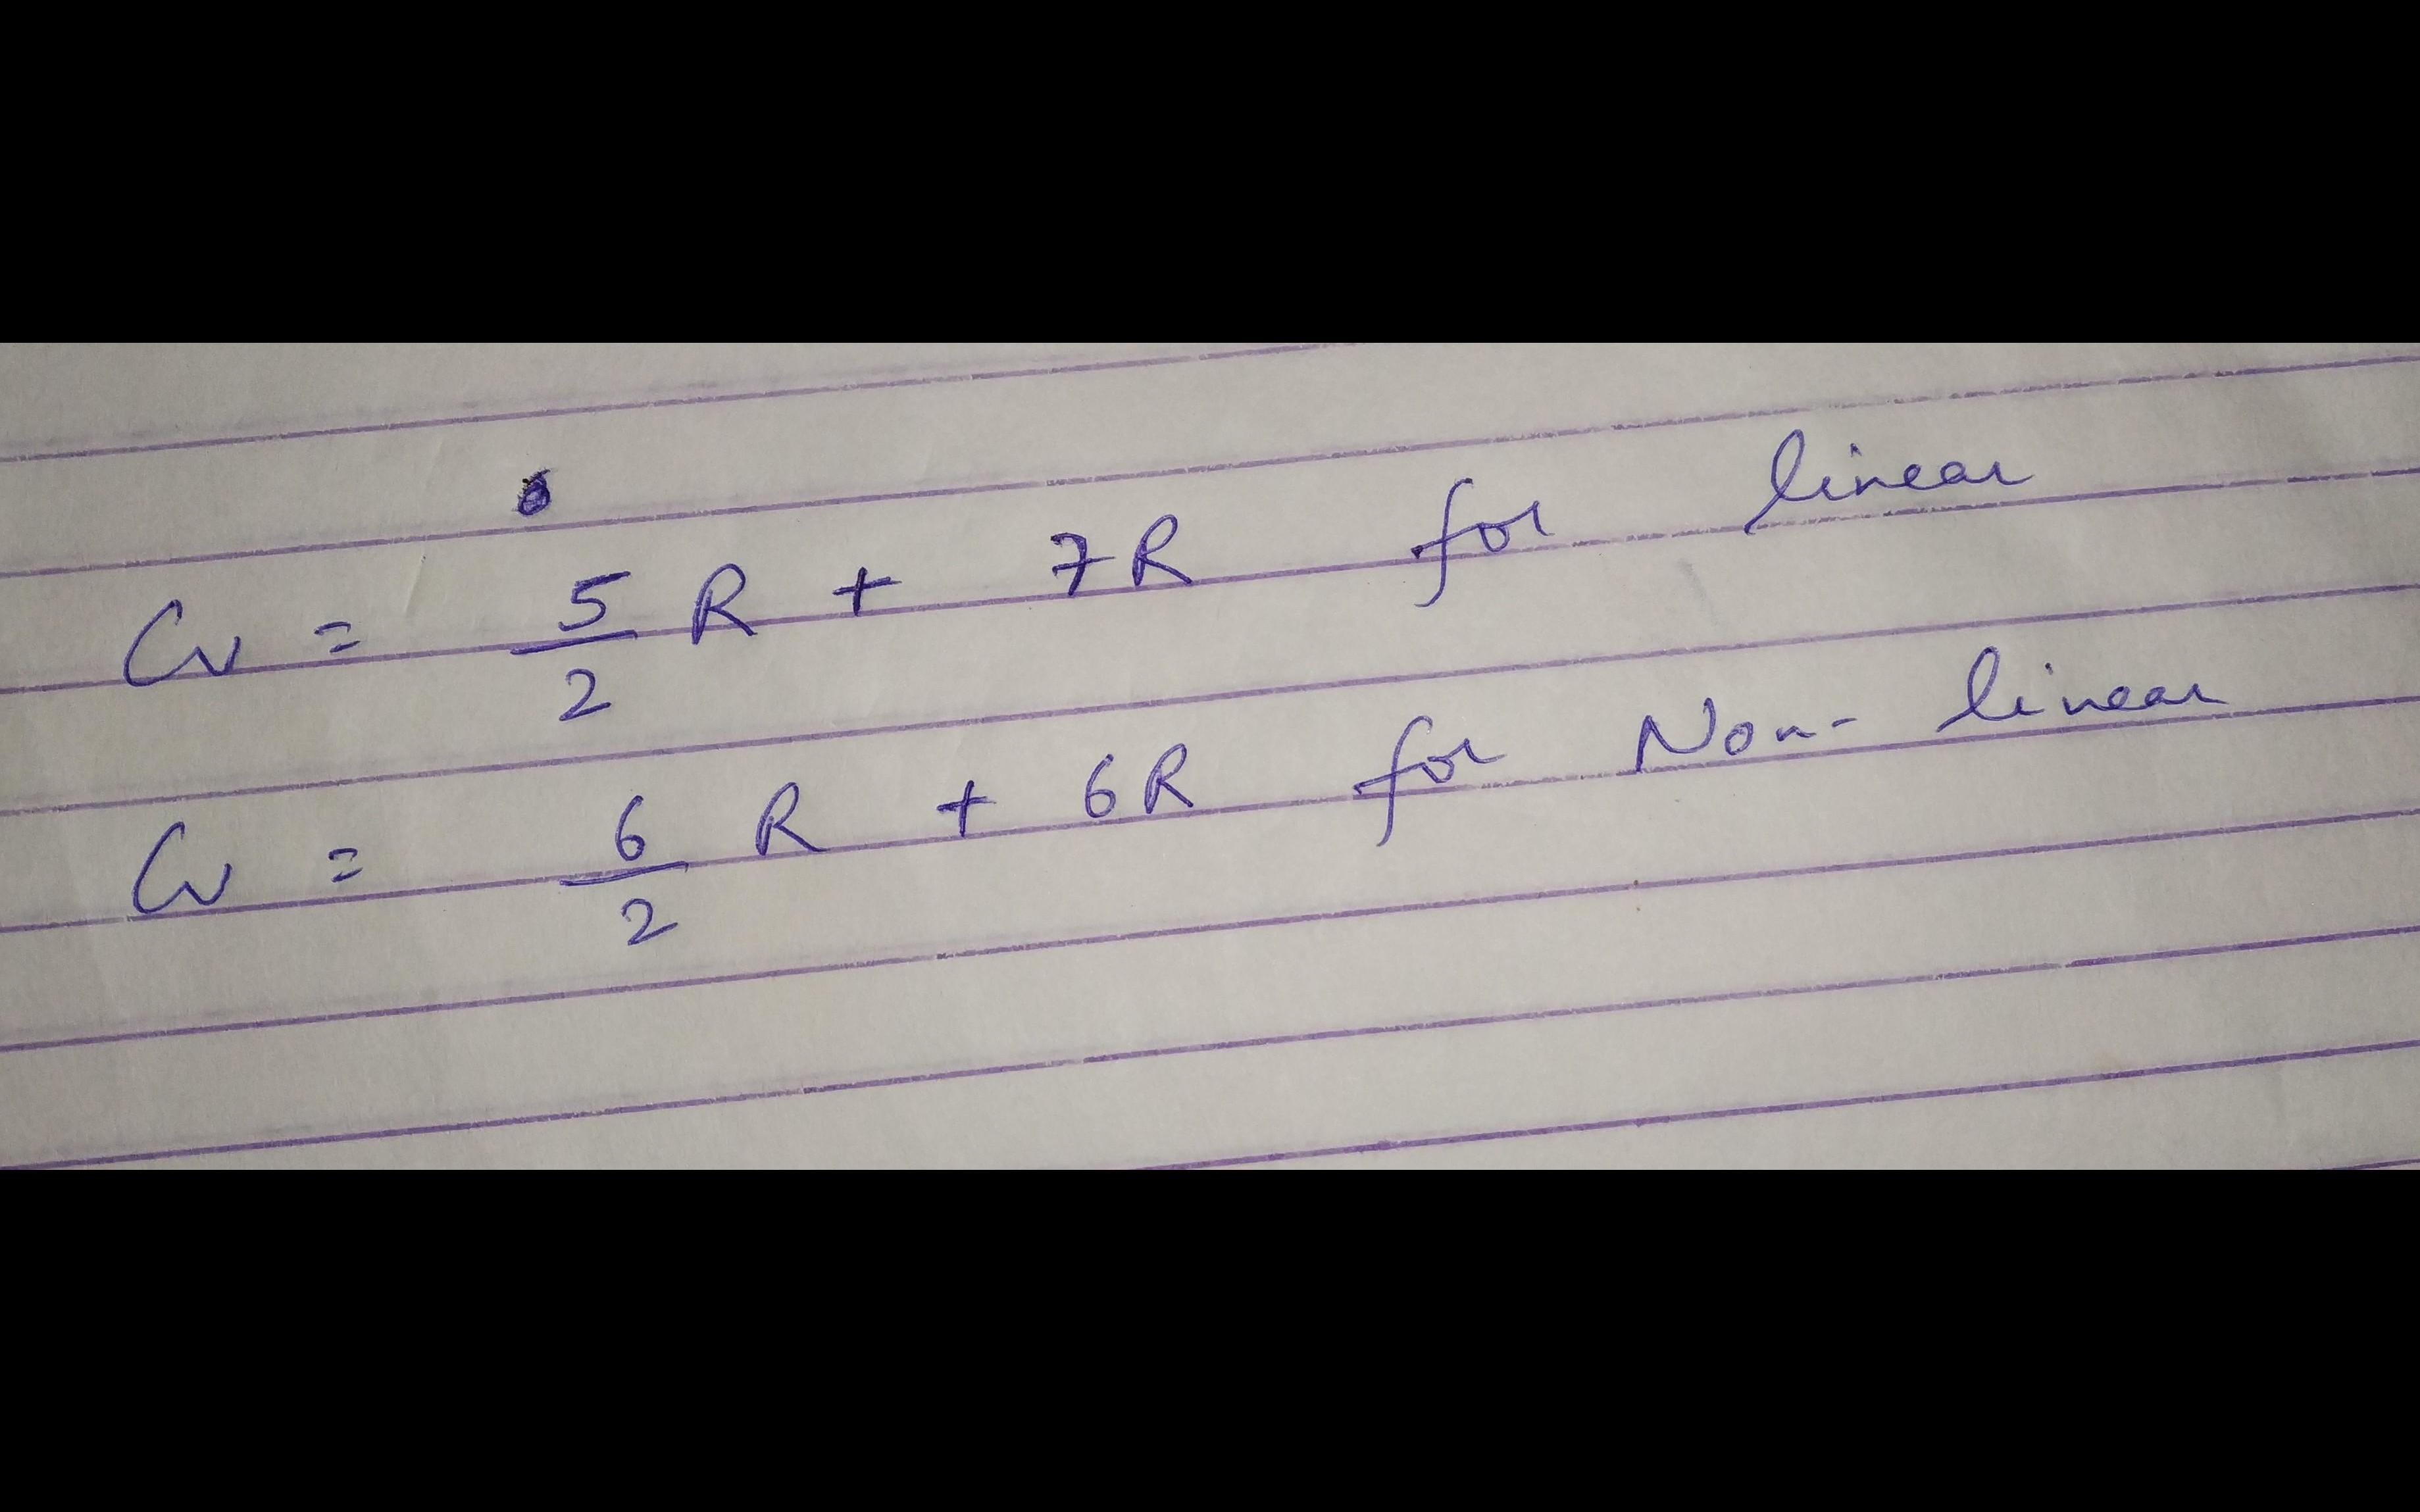 Cv = 5/2 R + 7R for linear
Cv = 6/2 R + 6R for Non-linear